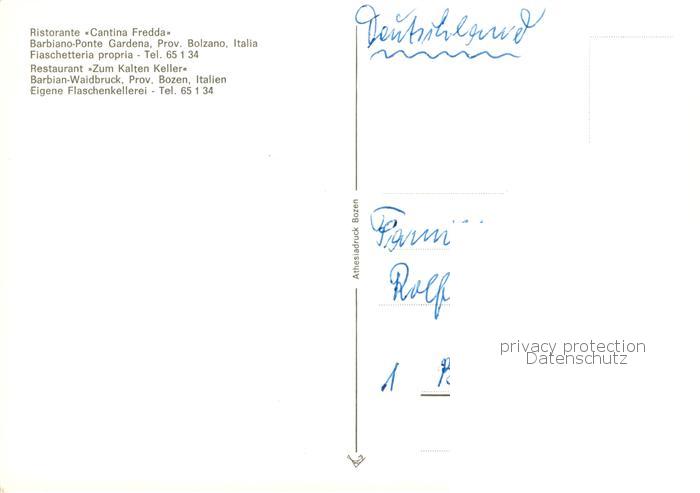 Ristorante «Cantina Fredda»
Barbiano-Ponte Gardena, Prov. Bolzano, Italia
Fiaschetteria propria - Tel. 65 1 34
Restaurant «Zum Kalten Keller»
Barbian-Waidbruck, Prov. Bozen, Italien
Eigene Flaschenkellerei - Tel. 65 1 34
Athesiadruck Bozen
Deutschland
Fami
Rolf
1 B
privacy protection
Datenschutz